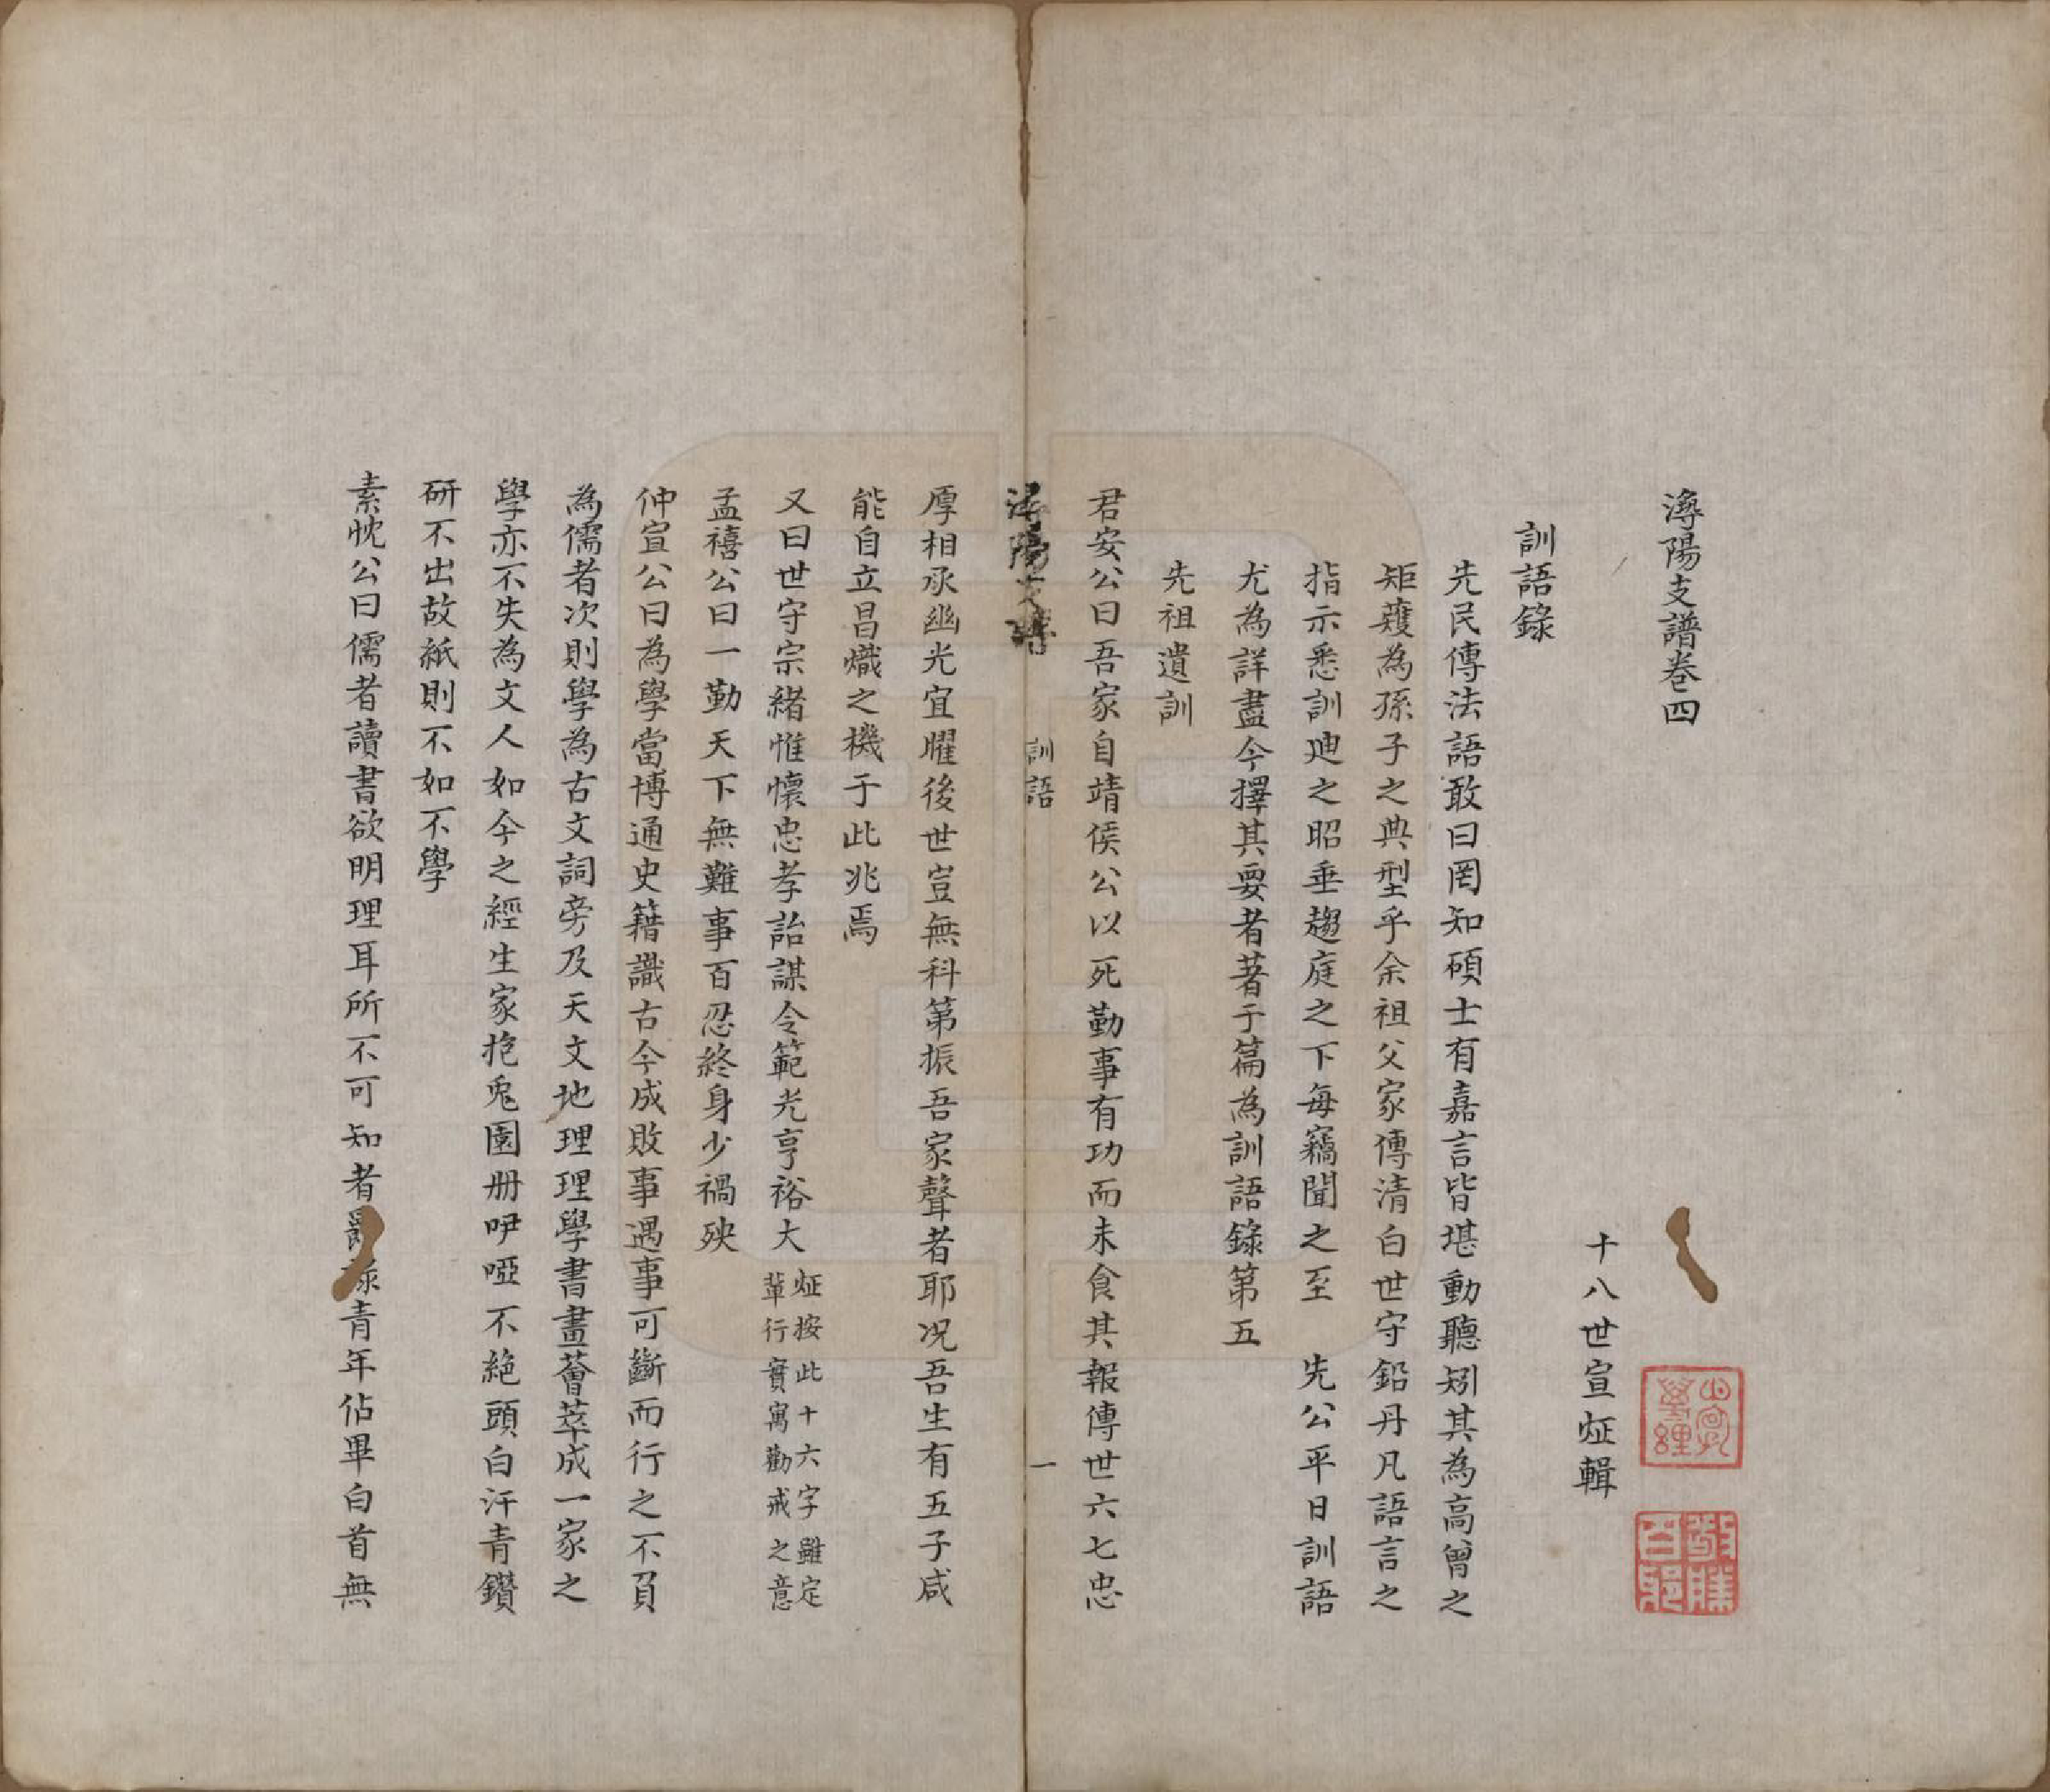 潯陽支譜卷四
十八世宣炡輯
訓語錄
先民傳法語敢曰罔知碩士有嘉言皆堪動聽矧其為高曾之
矩矱為孫子之典型乎余祖父家傳清白世守鉛丹凡語言之
指示悉訓迪之昭垂趨庭之下每竊聞之至　先公平日訓語
尤為詳盡今擇其要者著于篇為訓語錄第五
先祖遺訓
君安公曰吾家自靖侯公以死勤事有功而未食其報傳世六七忠
潯陽支譜　訓語　一
厚相承幽光宜曜後世豈無科第振吾家聲者耶况吾生有五子咸
能自立昌熾之機于此兆焉
又曰世守宗緒惟懷忠孝詒謀令範光亨裕大
炡按此十六字雖定
輩行實寓勸戒之意
孟禧公曰一勤天下無難事百忍終身少禍殃
仲宣公曰為學當博通史籍識古今成敗事遇事可斷而行之不負
為儒者次則學為古文詞旁及天文地理理學書畫薈萃成一家之
學亦不失為文人如今之經生家抱兎園册咿啞不絶頭白汗青鑽
研不出故紙則不如不學
素忱公曰儒者讀書欲明理耳所不可知者爵祿青年佔畢白首無